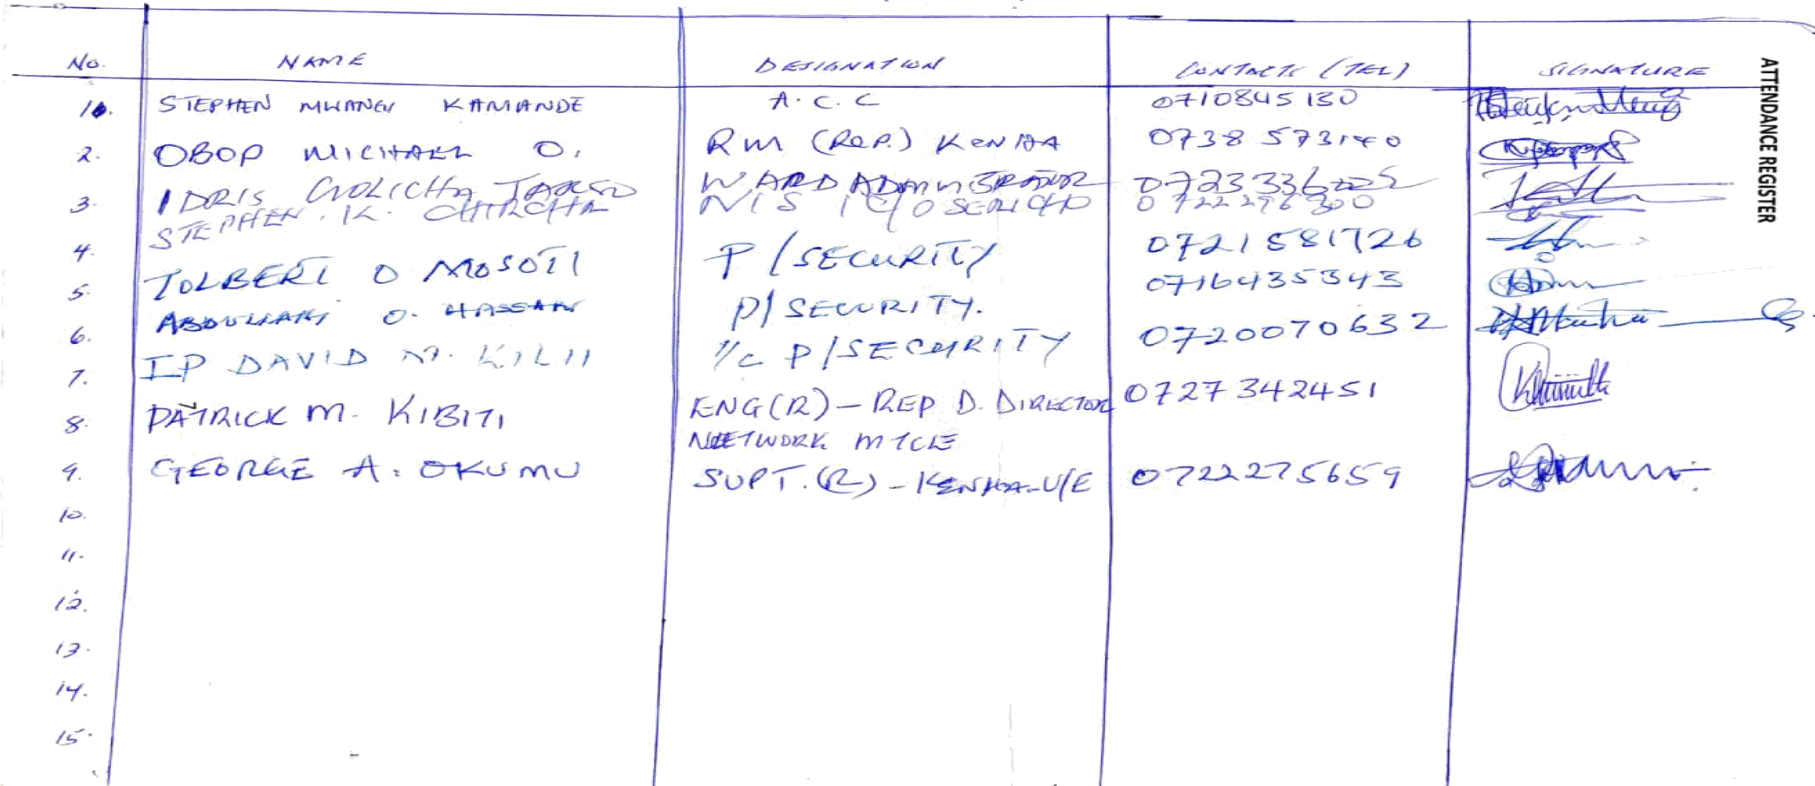 ATTENDANCE REGISTER
No. NAME DESIGNATION CONTACTS (TEL) SIGNATURE
1. STEPHEN MWANGI KAMANDE A.C.C 0710845130
2. OBOP MICHAEL O. RM (REP.) KENHA 0738573140
3. IDRIS GOLICHA WARD ADMINISTRATOR
STEPHEN. K. CHIRCHIR NIS SERICHO
4. TOLBERT O MOSOTI P/SECURITY 0721581726
5. ABDULLAHI O. HASSAN P/SECURITY. 0716435343
6. IP DAVID M. KILII I/C P/SECURITY 0720070632
7.
8. PATRICK M. KIBITI ENG(R)-REP D. DIRECTOR 0727342451
NETWORK MTCE
9. GEORGE A. OKUMU SUPT.(R)-KENHA-U/E 0722275659
10.
11.
12.
13.
14.
15.